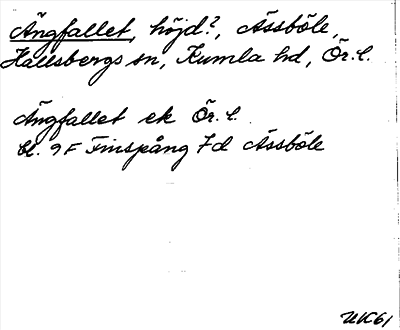 Ängfallet, höjd?, Ässböle,
Hallsbergs sn, Kumla hd, Ör. l.
Ängfallet ek Ör. l.
bl. 9F Finspång 7d Ässböle
UK61